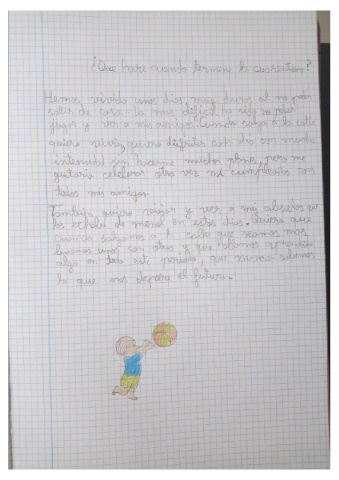 ¿Que hare cuando termine la cuarentena?
Hemos vivido unos días, muy duros al no poder
salir de casa. Lo mas difícil ha sido no poder
jugar y ver a mis amigos. Cuando salga a la calle
quiero vivir, quiero disfrutar cada día con mucha
intensidad sin hacerme muchos planes, pero me
gustaria celebrar otra vez mi cumpleaños con
todos mis amigos.
También quiero viajar y ver a mis abuelos que
los echaba de menos en estos días. Quiero que
cuando salgamos a la calle que seamos mas
buenos unos con otros y que hallamos aprendido
algo en todo este periodo, que nunca sabemos
lo que nos depara el futuro.